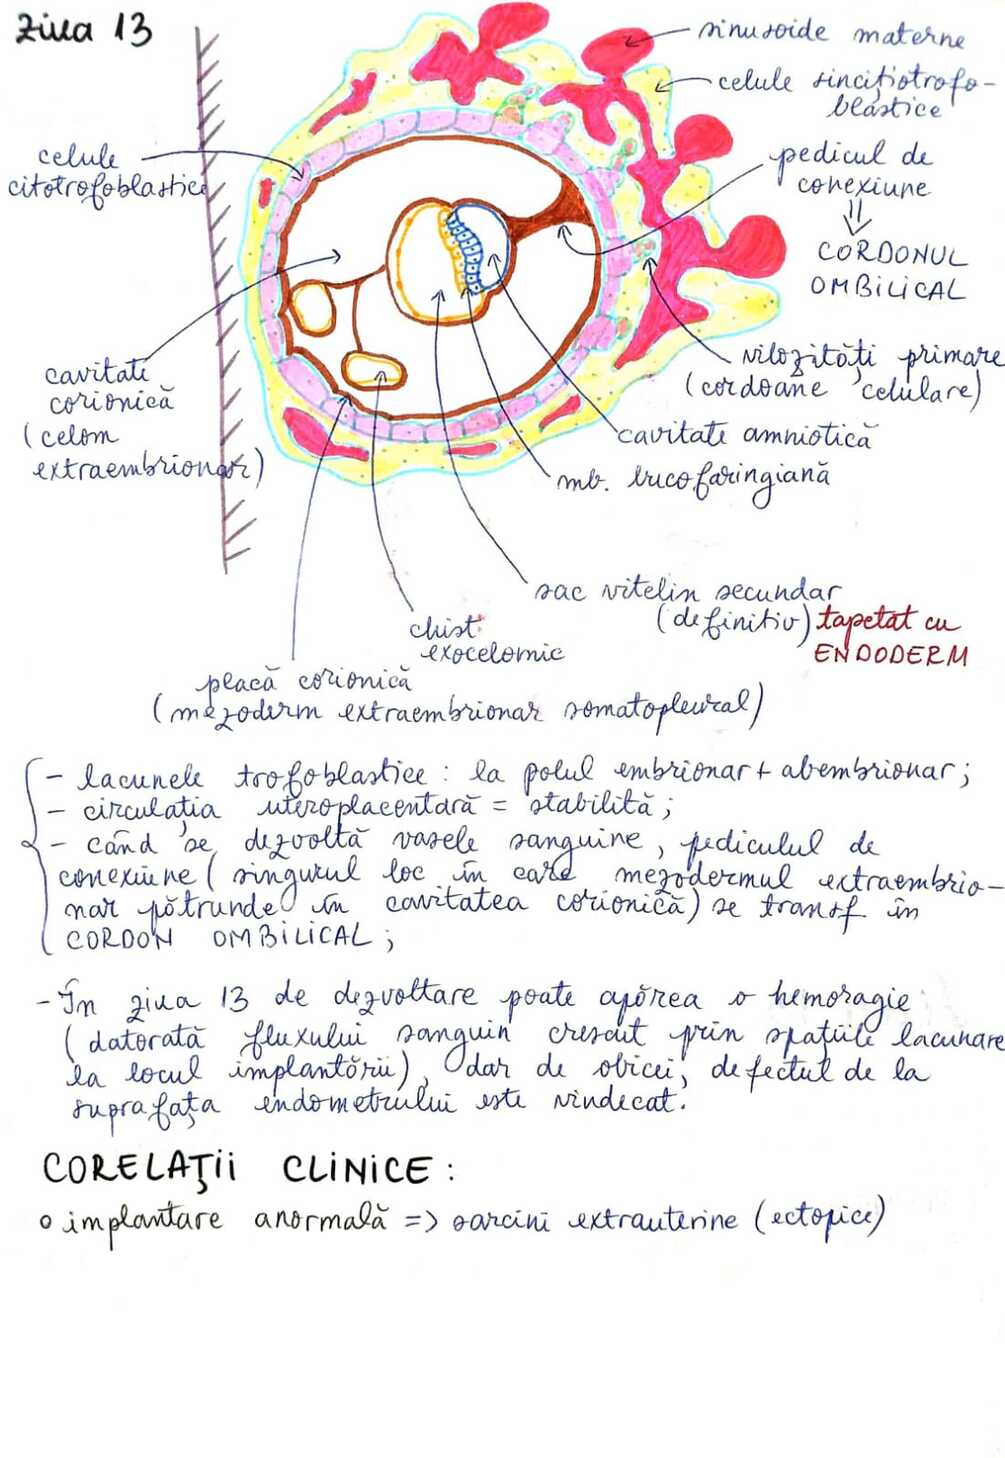 Ziua 13
sinusoide materne
celule sincițiotrofo-
blastice
celule
citotrofoblastice
pedicul de
conexiune
⇓
CORDONUL
OMBILICAL
vilozități primare
(cordoane celulare)
cavitate
corionică
(celom
extraembrionar)
cavitate amniotică
mb. bucofaringiană
sac vitelin secundar
(definitiv) tapetat cu
ENDODERM
chist
exocelomic
placă corionică
(mezoderm extraembrionar somatopleural)
- lacunele trofoblastice : la polul embrionar + abembrionar ;
- circulația uteroplacentară = stabilită ;
- când se dezvoltă vasele sanguine, pediculul de
conexiune (singurul loc în care mezodermul extraembrio-
nar pătrunde în cavitatea corionică) se transf în
CORDON OMBILICAL ;
- În ziua 13 de dezvoltare poate apărea o hemoragie
(datorată fluxului sanguin crescut prin spațiile lacunare
la locul implantării), dar de obicei, defectul de la
suprafața endometrului este vindecat.
CORELAȚII CLINICE :
o implantare anormală => sarcini extrauterine (ectopice)